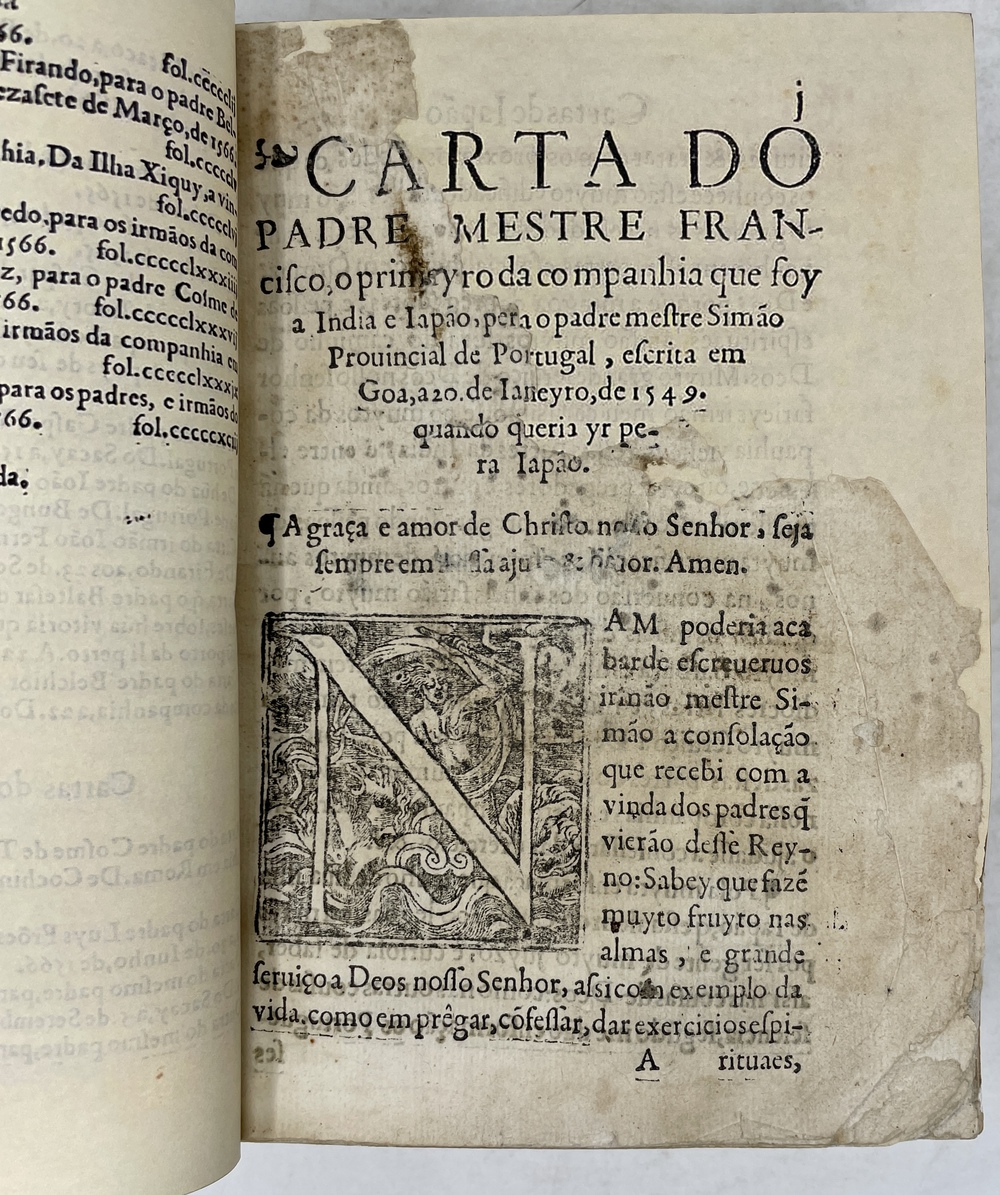 66.
fol.cccccl
Firando, para o padre Bel-
ezasete de Março, de 1566.
fol.ccccclv
hia, Da Ilha Xiquy, a vin-
fol.ccccclvj
edo, para os irmãos da com
1566. fol.ccccclxxxiii
z, para o padre Cosme de
66. fol.ccccclxxxvij
irmãos da companhia em
fol.ccccclxxxix
para os padres, e irmãos do
66. fol.cccccxcij
da.
j
CARTA DO
PADRE MESTRE FRAN-
ciſco, o primeyro da companhia que foy
a India e Iapão, pera o padre meſtre Simão
Prouincial de Portugal, eſcrita em
Goa, a 20. de Ianeyro, de 1549.
quando queria yr pe-
ra Iapão.
¶ A graça e amor de Chriſto noſſo Senhor, ſeja
ſempre em aju & Amen.
NAM poderia aca
bar de eſcreueruos
irmão meſtre Si-
mão a conſolação
que recebi com a
vinda dos padres q̃
vierão deſſe Rey-
no: Sabey que fazẽ
muyto fruyto nas
almas, e grande
ſeruiço a Deos noſſo Senhor, aſsi com exemplo da
vida. como em prêgar, cõfeſſar, dar exercicios eſpi-
A rituaes,